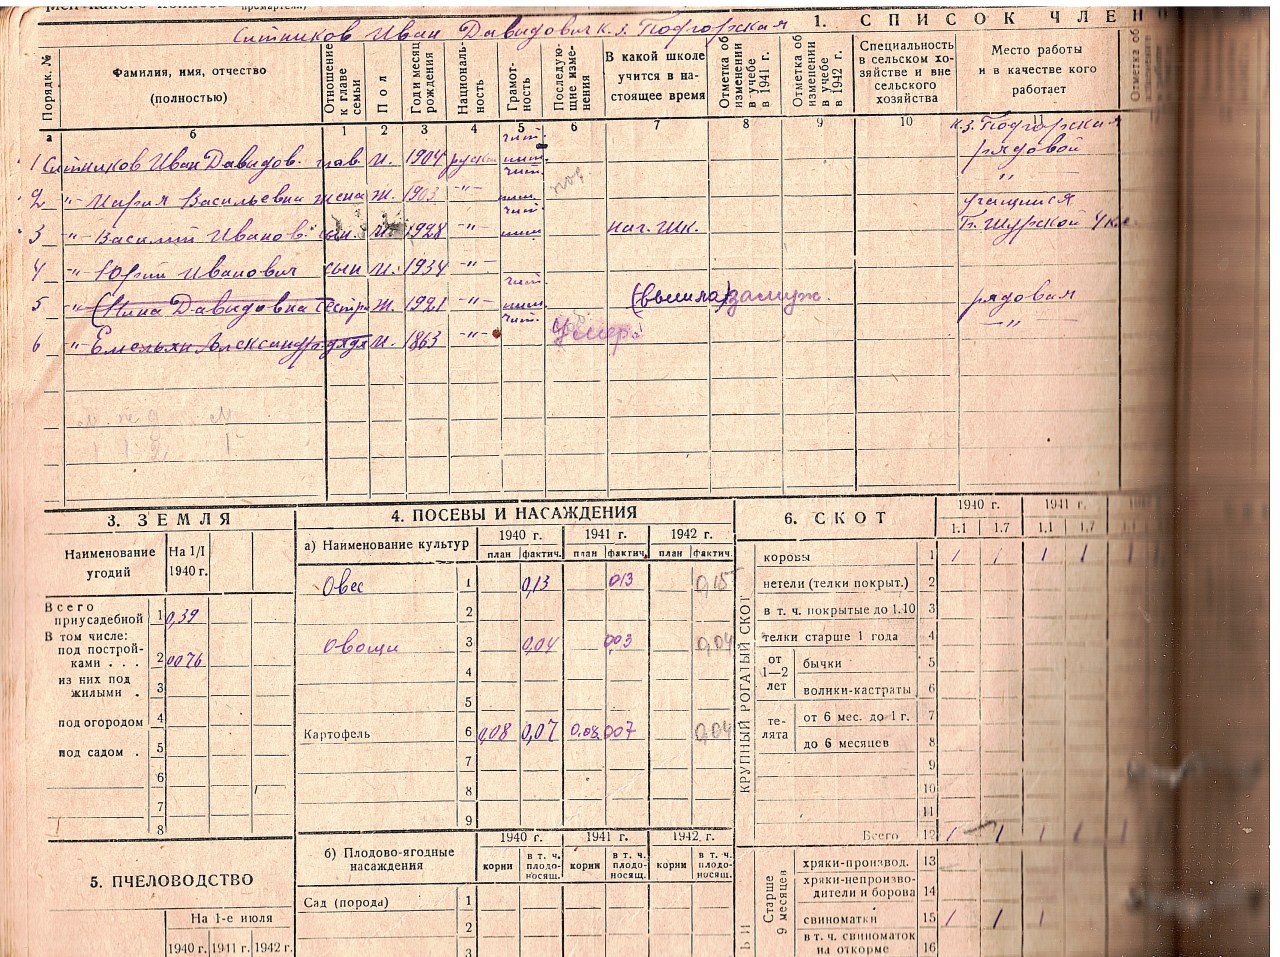 Ситников Иван Давидович к.з. Подгорская
1. СПИСОК ЧЛЕНО
Порядк. № | Фамилия, имя, отчество (полностью) | Отношение к главе семьи | Пол | Год и месяц рождения | Националь-ность | Грамот-ность | Последую-щие изме-нения | В какой школе учится в на-стоящее время | Отметка об изменении в учебе в 1941 г. | Отметка об изменении в учебе в 1942 г. | Специальность в сельском хо-зяйстве и вне сельского хозяйства | Место работы и в качестве кого работает
а б 1 2 3 4 5 6 7 8 9 10 11
1 Ситников Иван Давидов. глав. М. 1904 русский чит. пис. к.з. Подгорская рядовой
2 -"- Мария Васильевна жена Ж. 1903 -"- чит. пис. -"-
3 -"- Василий Иванов. сын. М. 1928 -"- чит. пис. нач. шк. учащийся
4 -"- Юрий Иванович сын М. 1934 -"-
5 -"- (Нина Давидовна сестра Ж. 1921 -"- чит. пис. (вышла) замуж. рядовая
6 -"- Емельян Александр. дядя М. 1863 -"- чит. Умер. -"-
3. ЗЕМЛЯ
Наименование угодий | На 1/I 1940 г.
Всего приусадебной 1 0,39
В том числе:
под построй-ками . . . 2 0076
из них под жилыми . 3
под огородом 4
под садом . 5
6
7
8
5. ПЧЕЛОВОДСТВО
На 1-е июля
1940 г. 1941 г. 1942 г.
4. ПОСЕВЫ И НАСАЖДЕНИЯ
а) Наименование культур | 1940 г. | 1941 г. | 1942 г.
план фактич. план фактич. план фактич.
Овес 1 0,13 013 0,15
2
Овощи 3 0,04 0,03 0,04
4
5
Картофель 6 0,08 0,07 0,08 007 0,04
7
8
9
б) Плодово-ягодные насаждения | 1940 г. | 1941 г. | 1942 г.
корни в т. ч. плодо-носящ. корни в т. ч. плодо-носящ. корни в т. ч. плодо-носящ.
Сад (порода) 1
2
3
6. СКОТ | 1940 г. | 1941 г.
1.1 1.7 1.1 1.7
КРУПНЫЙ РОГАТЫЙ СКОТ
коровы 1 1 1 1 1 1
нетели (телки покрыт.) 2
в т. ч. покрытые до 1.10 3
телки старше 1 года 4
от 1—2 лет
бычки 5
волики-кастраты 6
те-лята
от 6 мес. до 1 г. 7
до 6 месяцев 8
9
10
11
Всего 12 1 1 1 1 1
Старше 9 месяцев
хряки-производ. 13
хряки-непроизво-дители и борова 14
свиноматки 15 1 1 1
в т. ч. свиноматок на откорме 16